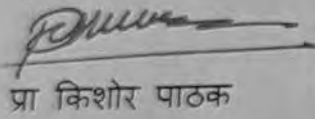 प्रा किशोर पाठक